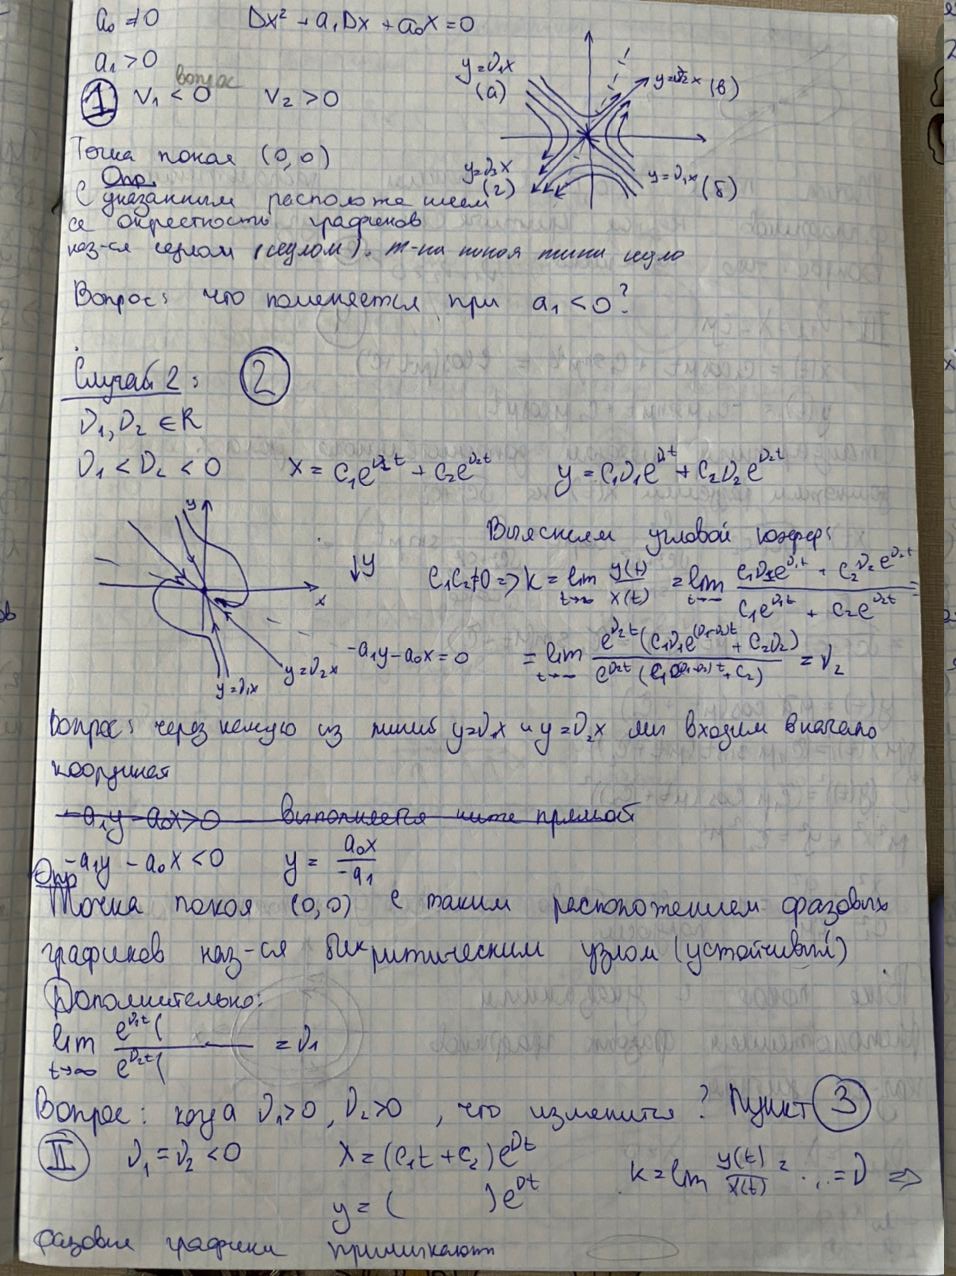 a₀ ≠ 0 Dx² + a₁Dx + a₀x = 0
a₁ > 0
вопрос
① ν₁ < 0 ν₂ > 0
y=ν₁x (а)
y=ν₂x (в)
y=ν₂x (г)
y=ν₁x (б)
Точка покоя (0,0)
Опр.
С указанным расположением
се окрестность графиков
наз-ся седлом (седлом). т-ка покоя типа седло
Вопрос: что поменяется при a₁ < 0?
Случай 2: ②
ν₁, ν₂ ∈ R
ν₁ < ν₂ < 0 x = c₁e^{ν₁t} + c₂e^{ν₂t} y = c₁ν₁e^{ν₁t} + c₂ν₂e^{ν₂t}
y
x
y=ν₁x
y=ν₂x
Выясняем угловой коэфф:
↓y c₁c₂≠0 => k = lim t→∞ y(t)/x(t) = lim t→∞ (c₁ν₁e^{ν₁t} + c₂ν₂e^{ν₂t})/(c₁e^{ν₁t} + c₂e^{ν₂t}) =
-a₁y-a₀x = 0 = lim t→∞ e^{ν₂t}(c₁ν₁e^{(ν₁-ν₂)t} + c₂ν₂)/e^{ν₂t}(c₁e^{(ν₁-ν₂)t} + c₂) = ν₂
Вопрос: через какую из линий y=ν₁x и y=ν₂x мы входим в начало
координат
-a₁y-a₀x>0 выполняется ниже прямой
-a₁y - a₀x < 0 y = a₀x/-a₁
Опр
Точка покоя (0,0) с таким расположением фазовых
графиков наз-ся бикритическим узлом (устойчивый)
Дополнительно:
lim t→∞ e^{ν₁t}(/e^{ν₂t}( = ν₁
Вопрос: когда ν₁>0, ν₂>0, что изменится? Пункт ③
Ⅱ ν₁ = ν₂ < 0 x = (c₁t + c₂)e^{νt}
k = lim y(t)/x(t) = ... = ν ⇒
y = ( )e^{νt}
фазовые графики примыкают